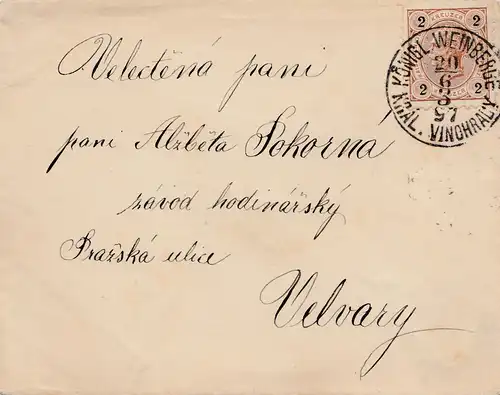 2 KREUZER 2
2 2
KÖNIGL. WEINBERGE
20
6
3
97
KRÁL. VINOHRADY
Velectěná paní
paní Alžběta Pokorná
závod hodinářský
Pražská ulice
Velvary